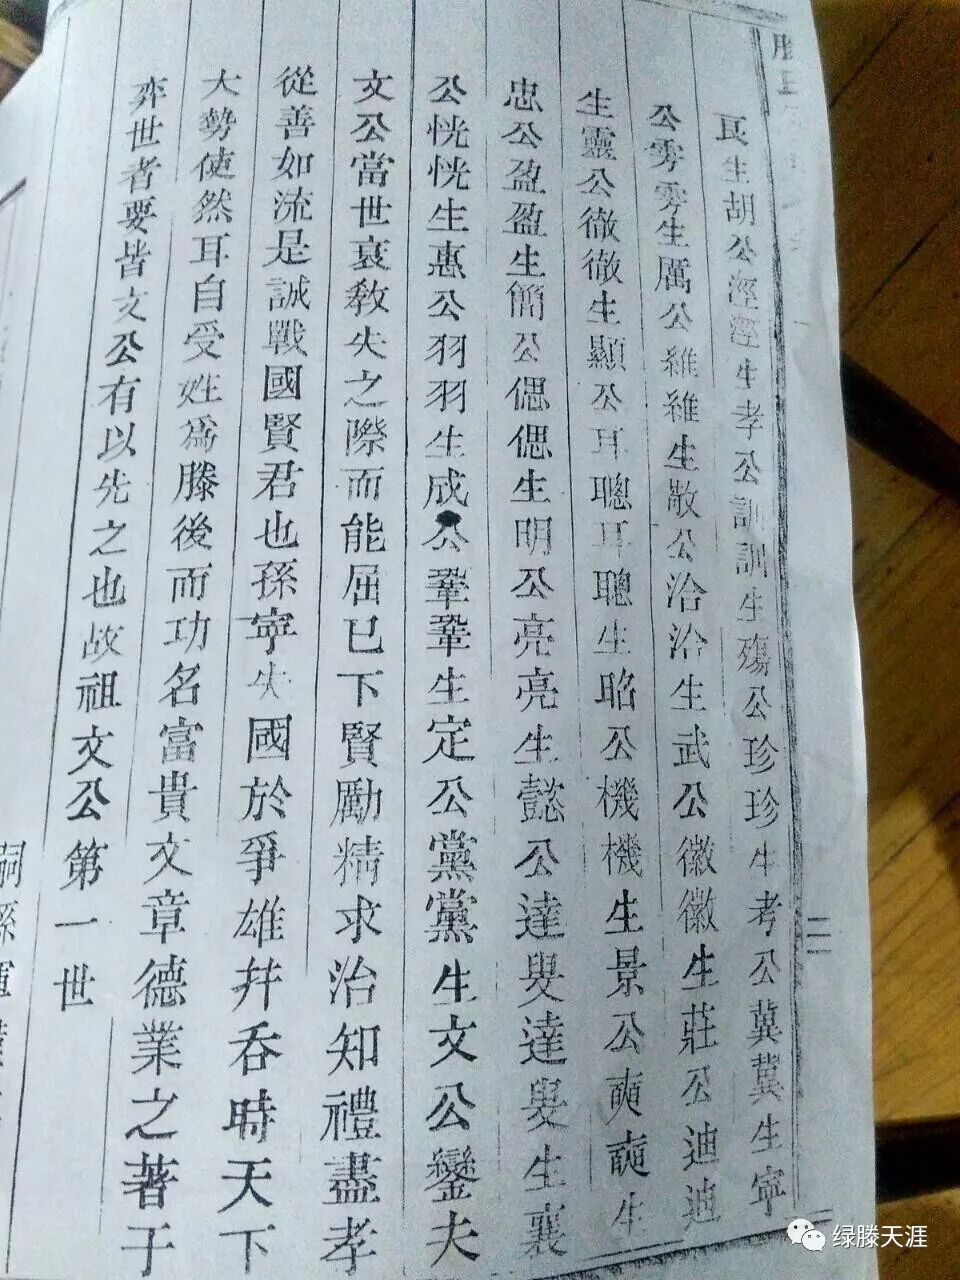 艮生胡公涇涇生孝公訓訓生殤公珍珍生考公冀冀生寧
公雱雱生厲公維維生敬公洽洽生武公徽徽生莊公迪迪
生靈公徹徹生顯公耳聰耳聰生昭公機機生景公奭奭生
忠公盈盈生簡公偲偲生明公亮亮生懿公達叟達叟生襄
公恍恍生惠公羽羽生成公鞏鞏生定公黨黨生文公鑾夫
文公當世衰教失之際而能屈已下賢勵精求治知禮盡孝
從善如流是誠戰國賢君也孫寧失國於爭雄并吞時天下
大勢使然耳自受姓爲滕後而功名富貴文章德業之著于
弈世者要皆文公有以先之也故祖文公第一世
嗣孫
二
绿滕天涯